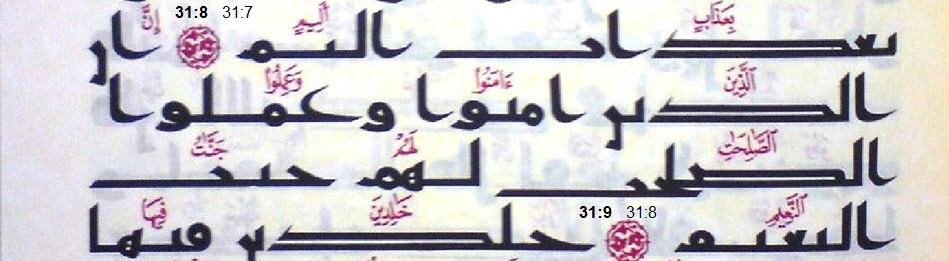 31:8 31:7
بِعَذَابٍ أَلِيمٍ إِنَّ
بعداب اليم ان
ٱلَّذِينَ ءَامَنُوا۟ وَعَمِلُوا۟
الدين امنوا وعملوا
ٱلصَّٰلِحَٰتِ لَهُمْ جَنَّٰتُ
الصلحت لهم جنت
31:9 31:8
ٱلنَّعِيمِ خَٰلِدِينَ فِيهَا
النعيم خلدين فيها